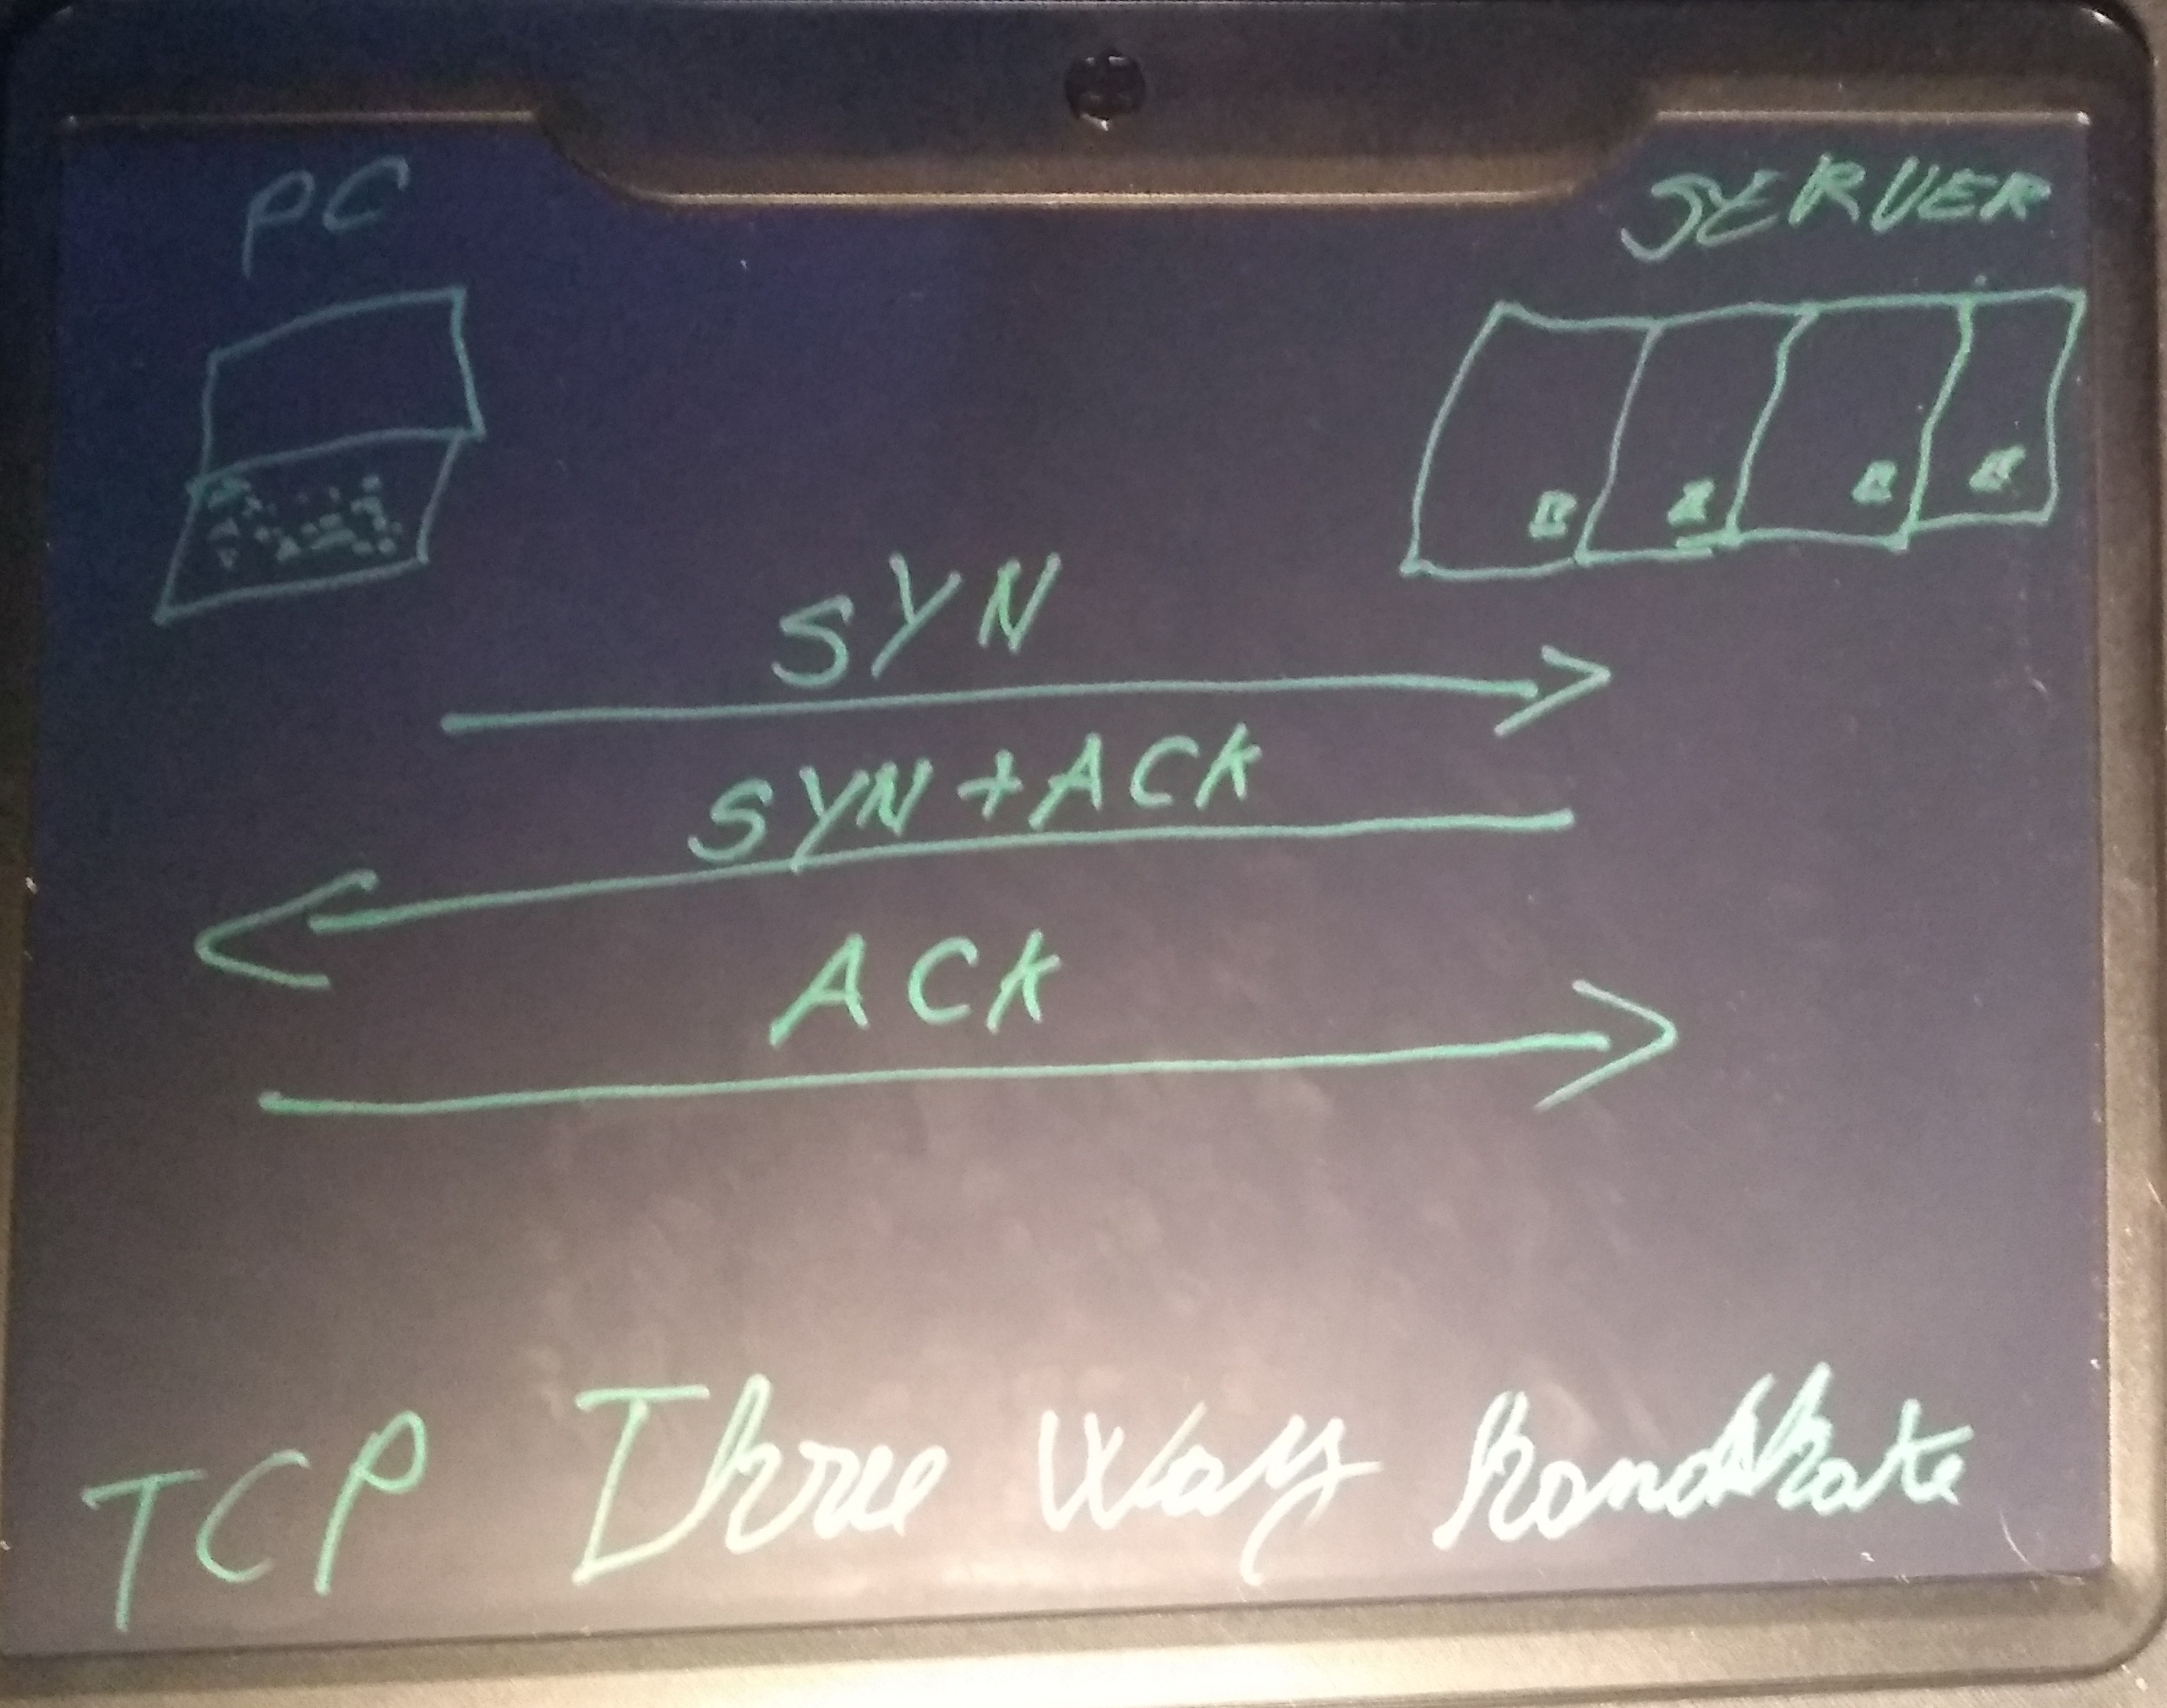 PC
SERVER
SYN
SYN+ACK
ACK
TCP Three Way Handshake